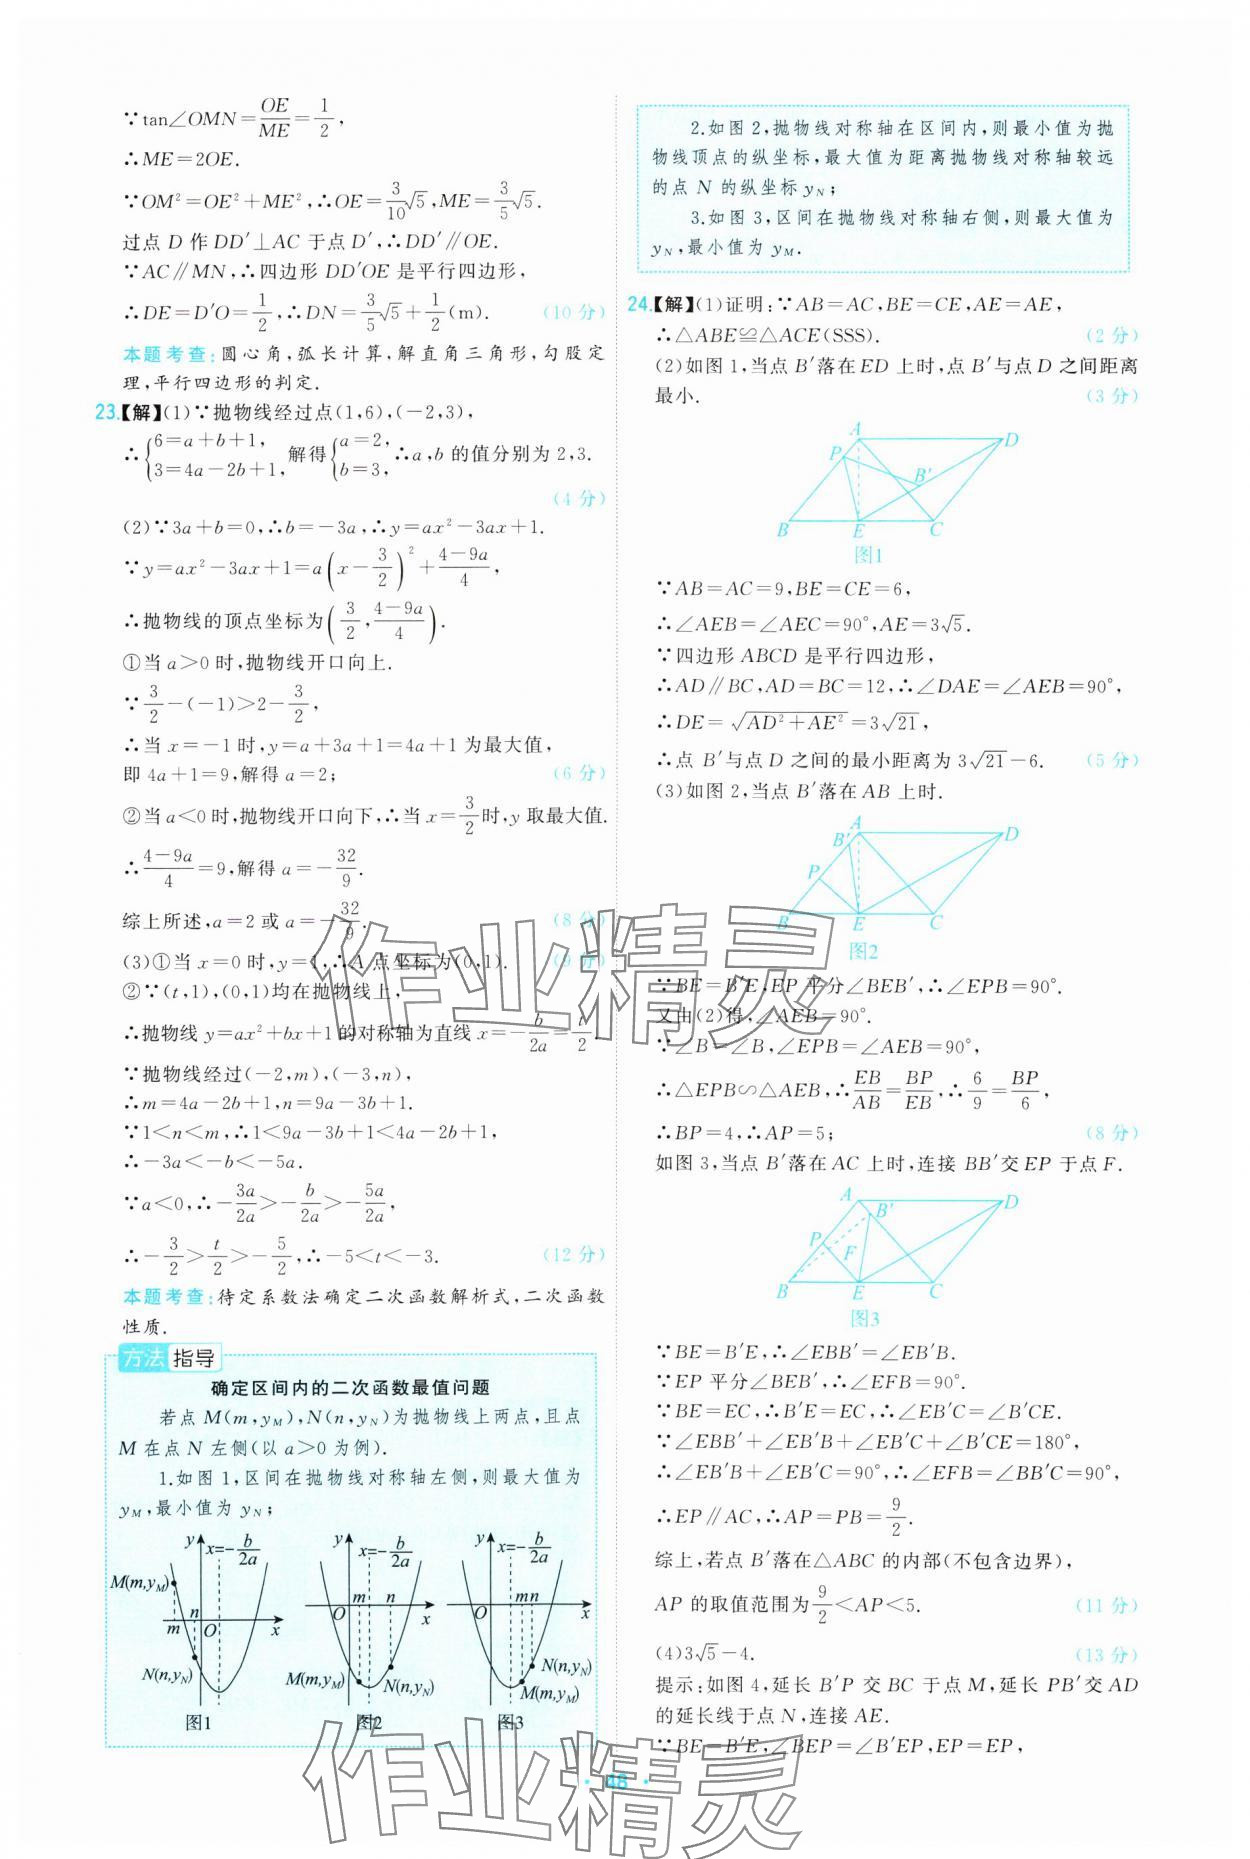 ∵tan∠OMN=OE/ME=1/2,
∴ME=2OE.
∵OM²=OE²+ME²,∴OE=3/10√5,ME=3/5√5.
过点 D 作 DD′⊥AC 于点 D′,∴DD′∥OE.
∵AC∥MN,∴四边形 DD′OE 是平行四边形,
∴DE=D′O=1/2,∴DN=3/5√5+1/2(m). (10 分)
本题考查:圆心角,弧长计算,解直角三角形,勾股定
理,平行四边形的判定.
23.【解】(1)∵抛物线经过点(1,6),(−2,3),
∴{6=a+b+1, 3=4a−2b+1, 解得{a=2, b=3, ∴a,b 的值分别为 2,3.
(4 分)
(2)∵3a+b=0,∴b=−3a,∴y=ax²−3ax+1.
∵y=ax²−3ax+1=a(x−3/2)²+(4−9a)/4,
∴抛物线的顶点坐标为(3/2,(4−9a)/4).
①当 a>0 时,抛物线开口向上.
∵3/2−(−1)>2−3/2,
∴当 x=−1 时,y=a+3a+1=4a+1 为最大值,
即 4a+1=9,解得 a=2; (6 分)
②当 a<0 时,抛物线开口向下,∴当 x=3/2时,y 取最大值.
∴(4−9a)/4=9,解得 a=−32/9.
综上所述,a=2 或 a=−32/9. (8 分)
(3)①当 x=0 时,y=1,∴A 点坐标为(0,1). (9 分)
②∵(t,1),(0,1)均在抛物线上,
∴抛物线 y=ax²+bx+1 的对称轴为直线 x=−b/2a=t/2.
∵抛物线经过(−2,m),(−3,n),
∴m=4a−2b+1,n=9a−3b+1.
∵1<n<m,∴1<9a−3b+1<4a−2b+1,
∴−3a<−b<−5a.
∵a<0,∴−3a/2a>−b/2a>−5a/2a,
∴−3/2>t/2>−5/2,∴−5<t<−3. (12 分)
本题考查:待定系数法确定二次函数解析式,二次函数
性质.
方法指导
确定区间内的二次函数最值问题
若点 M(m,yM),N(n,yN)为抛物线上两点,且点
M 在点 N 左侧(以 a>0 为例).
1.如图 1,区间在抛物线对称轴左侧,则最大值为
yM,最小值为 yN;
y x=−b/2a M(m,yM) n m O x N(n,yN)
图1
y x=−b/2a m n O x M(m,yM) N(n,yN)
图2
y x=−b/2a m n O x N(n,yN) M(m,yM)
图3
2.如图 2,抛物线对称轴在区间内,则最小值为抛
物线顶点的纵坐标,最大值为距离抛物线对称轴较远
的点 N 的纵坐标 yN;
3.如图 3,区间在抛物线对称轴右侧,则最大值为
yN,最小值为 yM.
24.【解】(1)证明:∵AB=AC,BE=CE,AE=AE,
∴△ABE≌△ACE(SSS). (2 分)
(2)如图 1,当点 B′落在 ED 上时,点 B′与点 D 之间距离
最小. (3 分)
A D P B′ B E C
图1
∵AB=AC=9,BE=CE=6,
∴∠AEB=∠AEC=90°,AE=3√5.
∵四边形 ABCD 是平行四边形,
∴AD∥BC,AD=BC=12,∴∠DAE=∠AEB=90°,
∴DE=√(AD²+AE²)=3√21,
∴点 B′与点 D 之间的最小距离为 3√21−6. (5 分)
(3)如图 2,当点 B′落在 AB 上时.
A D B′ P B E C
图2
∵BE=B′E,EP 平分∠BEB′,∴∠EPB=90°.
又由(2)得,∠AEB=90°.
∵∠B=∠B,∠EPB=∠AEB=90°,
∴△EPB∽△AEB,∴EB/AB=BP/EB,∴6/9=BP/6,
∴BP=4,∴AP=5; (8 分)
如图 3,当点 B′落在 AC 上时,连接 BB′交 EP 于点 F.
A D B′ P F B E C
图3
∵BE=B′E,∴∠EBB′=∠EB′B.
∵EP 平分∠BEB′,∴∠EFB=90°.
∵BE=EC,∴B′E=EC,∴∠EB′C=∠B′CE.
∵∠EBB′+∠EB′B+∠EB′C+∠B′CE=180°,
∴∠EB′B+∠EB′C=90°,∴∠EFB=∠BB′C=90°,
∴EP∥AC,∴AP=PB=9/2.
综上,若点 B′落在△ABC 的内部(不包含边界),
AP 的取值范围为9/2<AP<5. (11 分)
(4)3√5−4. (13 分)
提示:如图 4,延长 B′P 交 BC 于点 M,延长 PB′交 AD
的延长线于点 N,连接 AE.
∵BE=B′E,∠BEP=∠B′EP,EP=EP,
· 48 ·
作业精灵
作业精灵